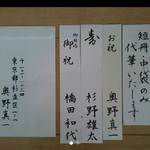 短冊・中袋のみ
代筆いたします
お祝
奥野真一
寿
杉野雄太
御祝
橋田和代
東京都杉並区
奥野真一